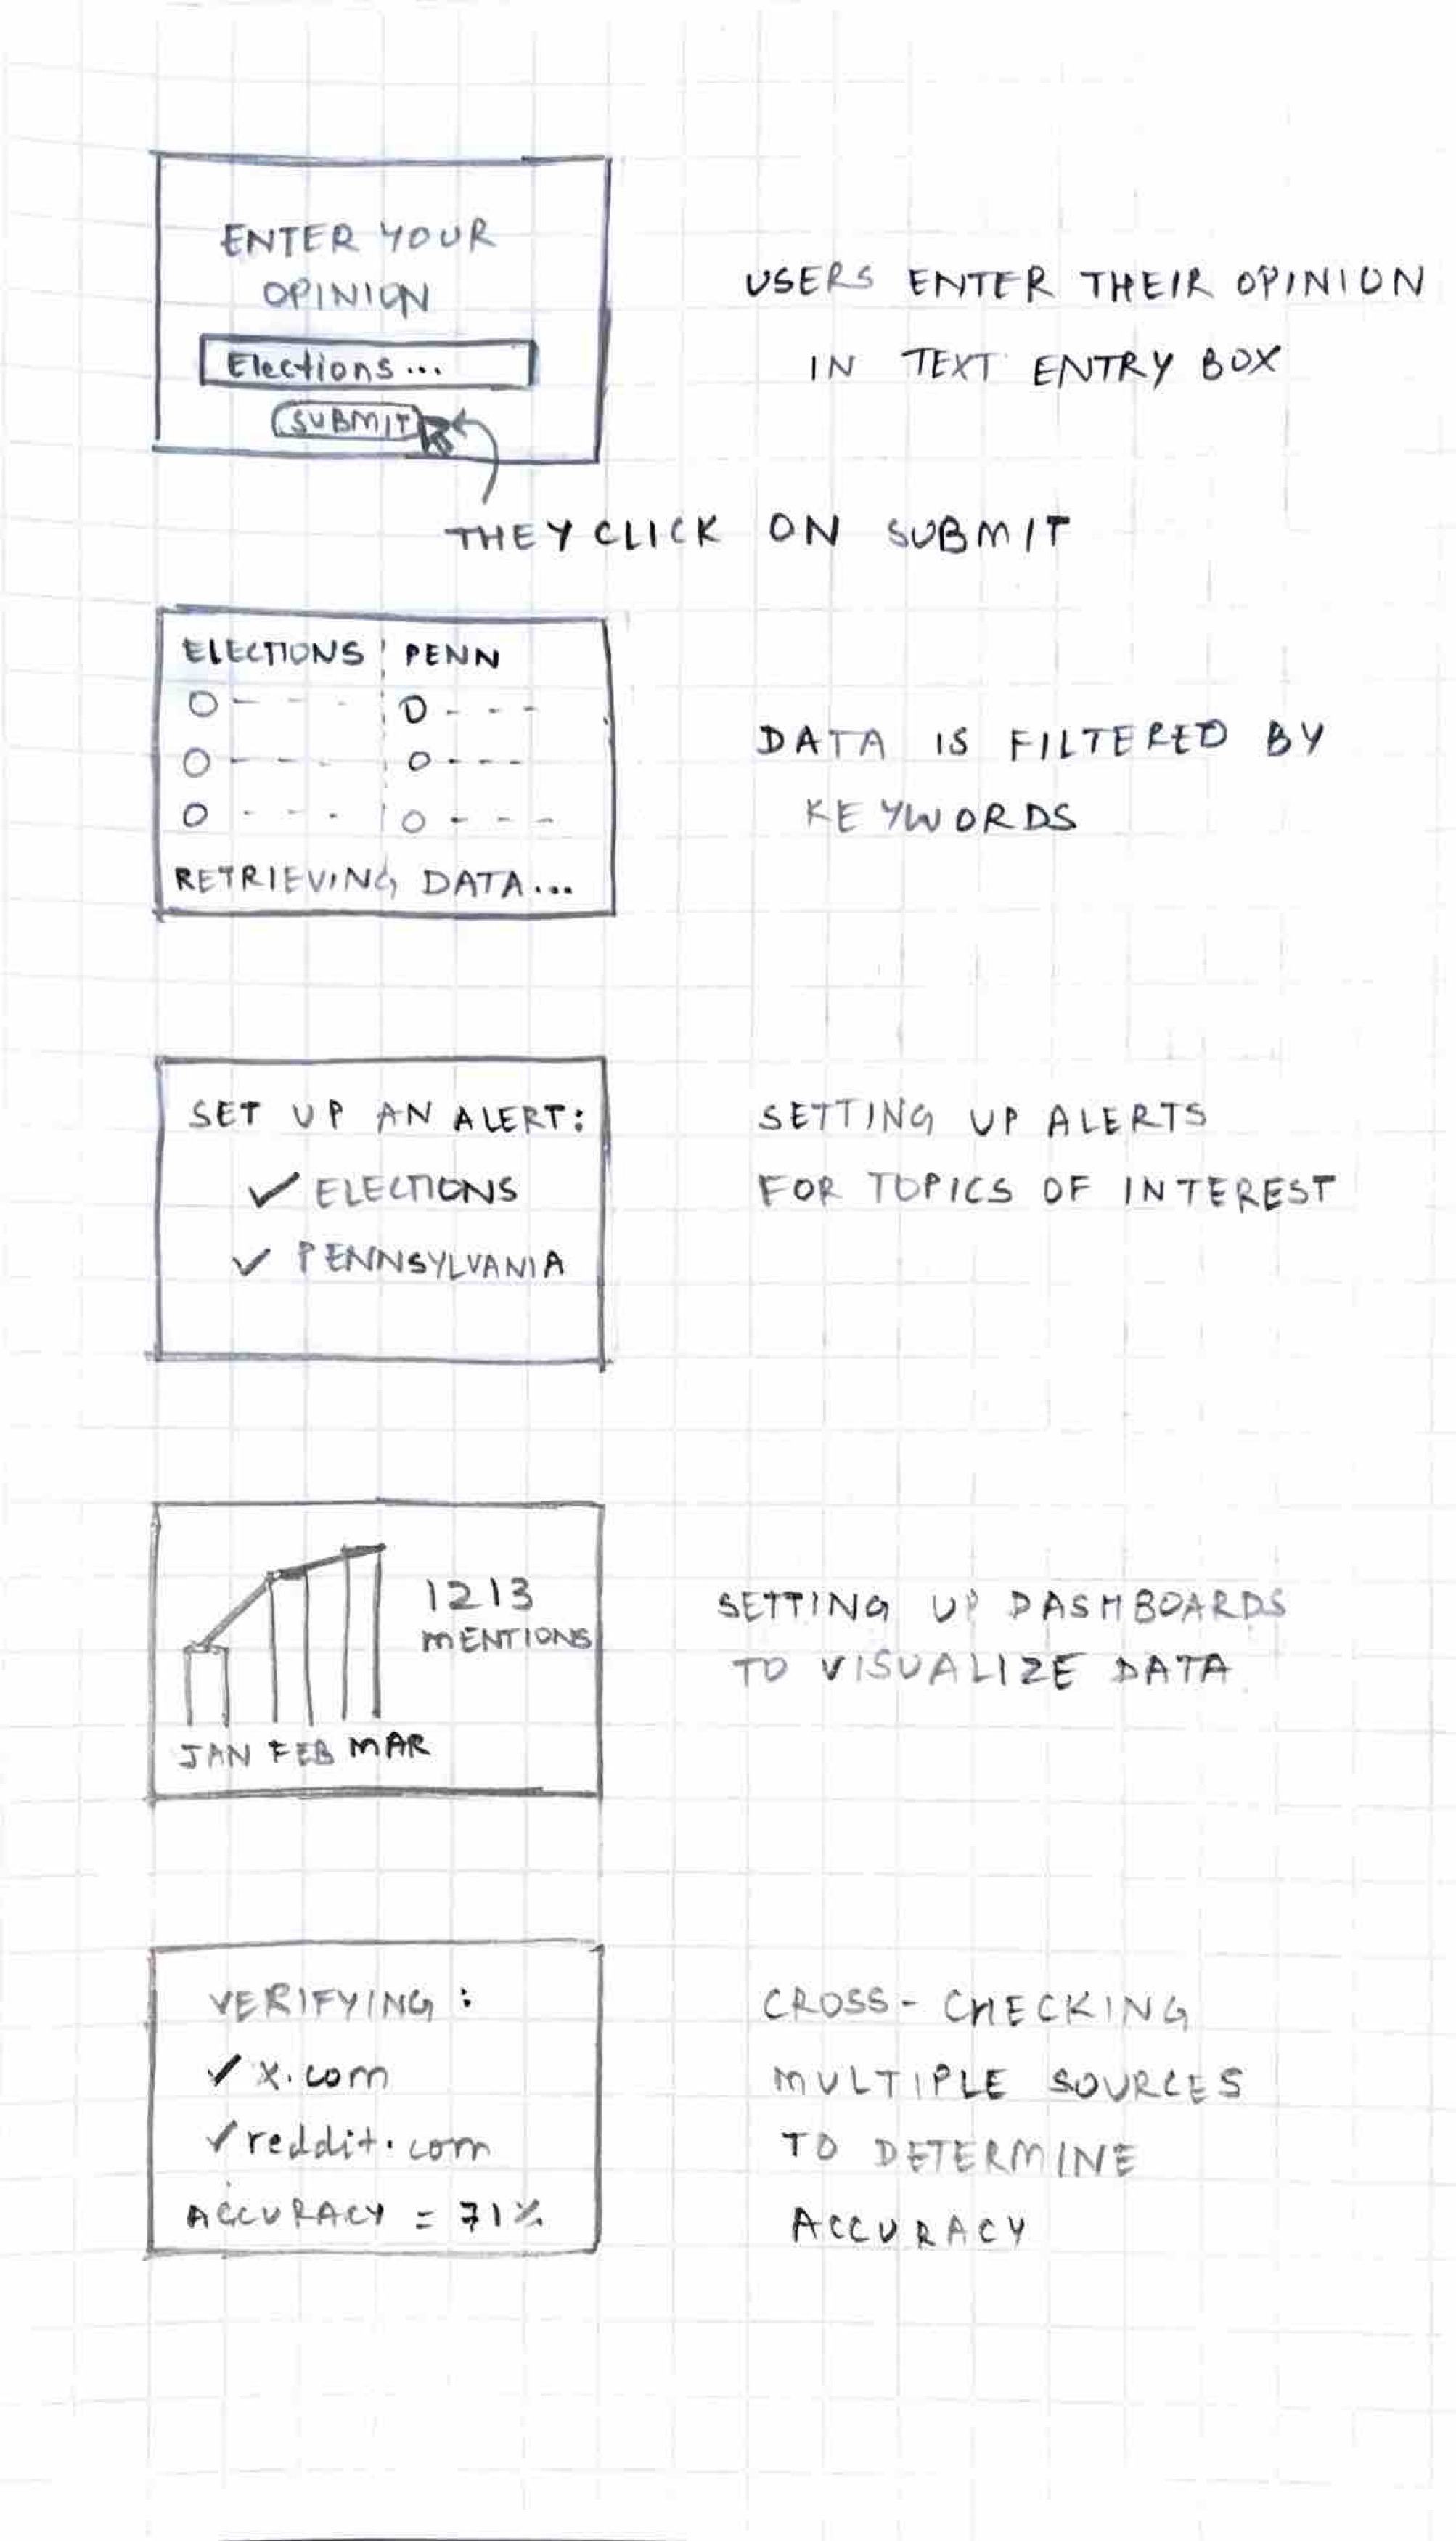 ENTER YOUR
OPINION
Elections...
SUBMIT
USERS ENTER THEIR OPINION
IN TEXT ENTRY BOX
THEY CLICK ON SUBMIT
ELECTIONS PENN
RETRIEVING DATA...
DATA IS FILTERED BY
KEYWORDS
SET UP AN ALERT:
✓ ELECTIONS
✓ PENNSYLVANIA
SETTING UP ALERTS
FOR TOPICS OF INTEREST
1213
MENTIONS
JAN FEB MAR
SETTING UP DASHBOARDS
TO VISUALIZE DATA
VERIFYING:
✓ x.com
✓ reddit.com
ACCURACY = 71%
CROSS-CHECKING
MULTIPLE SOURCES
TO DETERMINE
ACCURACY